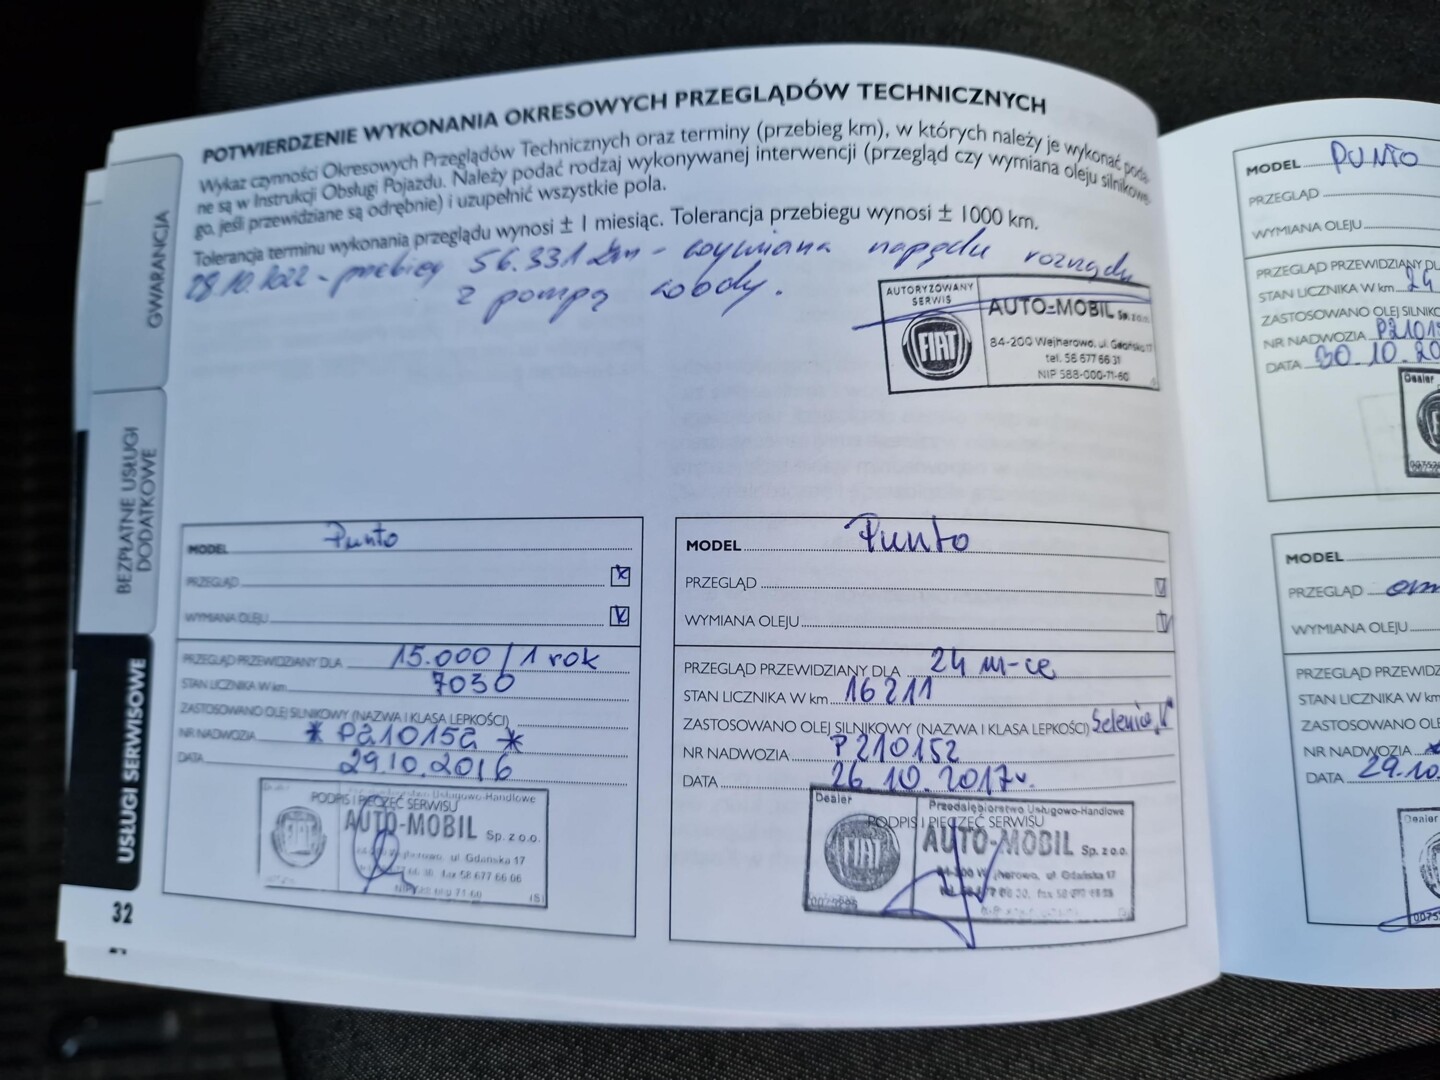 POTWIERDZENIE WYKONANIA OKRESOWYCH PRZEGLĄDÓW TECHNICZNYCH
Wykaz czynności Okresowych Przeglądów Technicznych oraz terminy (przebieg km), w których należy je wykonać poda-
ne są w Instrukcji Obsługi Pojazdu. Należy podać rodzaj wykonywanej interwencji (przegląd czy wymiana oleju silnikowe-
go, jeśli przewidziane są odrębnie) i uzupełnić wszystkie pola.
Tolerancja terminu wykonania przeglądu wynosi ± 1 miesiąc. Tolerancja przebiegu wynosi ± 1000 km.
28.10.2022 - przebieg 56.331 km - wymiana napędu rozrządu
z pompą wody.
AUTORYZOWANY
SERWIS
FIAT
AUTO-MOBIL Sp. z o.o.
84-200 Wejherowo, ul. Gdańska 17
tel. 58 677 66 31
NIP 588-000-71-60
GWARANCJA
BEZPŁATNE USŁUGI
DODATKOWE
USŁUGI SERWISOWE
MODEL Punto
PRZEGLĄD
WYMIANA OLEJU
PRZEGLĄD PRZEWIDZIANY DLA 15.000 / 1 rok
STAN LICZNIKA W km 7030
ZASTOSOWANO OLEJ SILNIKOWY (NAZWA I KLASA LEPKOŚCI)
NR NADWOZIA * P210152 *
DATA 29.10.2016
PODPIS I PIECZĘĆ SERWISU
Usługowo-Handlowe
AUTO-MOBIL Sp. z o.o.
ul Gdańska 17
fax 58 677 66 06
32
MODEL Punto
PRZEGLĄD
WYMIANA OLEJU
PRZEGLĄD PRZEWIDZIANY DLA 24 m-ce
STAN LICZNIKA W km 16211
ZASTOSOWANO OLEJ SILNIKOWY (NAZWA I KLASA LEPKOŚCI) Selenia „K"
NR NADWOZIA P210152
DATA 26.10.2017r.
PODPIS I PIECZĘĆ SERWISU
Dealer
FIAT
Przedsiębiorstwo Usługowo-Handlowe
AUTO-MOBIL Sp. z o.o.
84-200 Wejherowo, ul. Gdańska 17
MODEL PUNTO
PRZEGLĄD
WYMIANA OLEJU
PRZEGLĄD PRZEWIDZIANY DL
STAN LICZNIKA W km 24
ZASTOSOWANO OLEJ SILNIKO
NR NADWOZIA P21015
DATA 30.10.20
Dealer
MODEL
PRZEGLĄD
WYMIANA OLEJU
PRZEGLĄD PRZEWIDZ
STAN LICZNIKA W km
ZASTOSOWANO OLE
NR NADWOZIA
DATA 29.10
Dealer